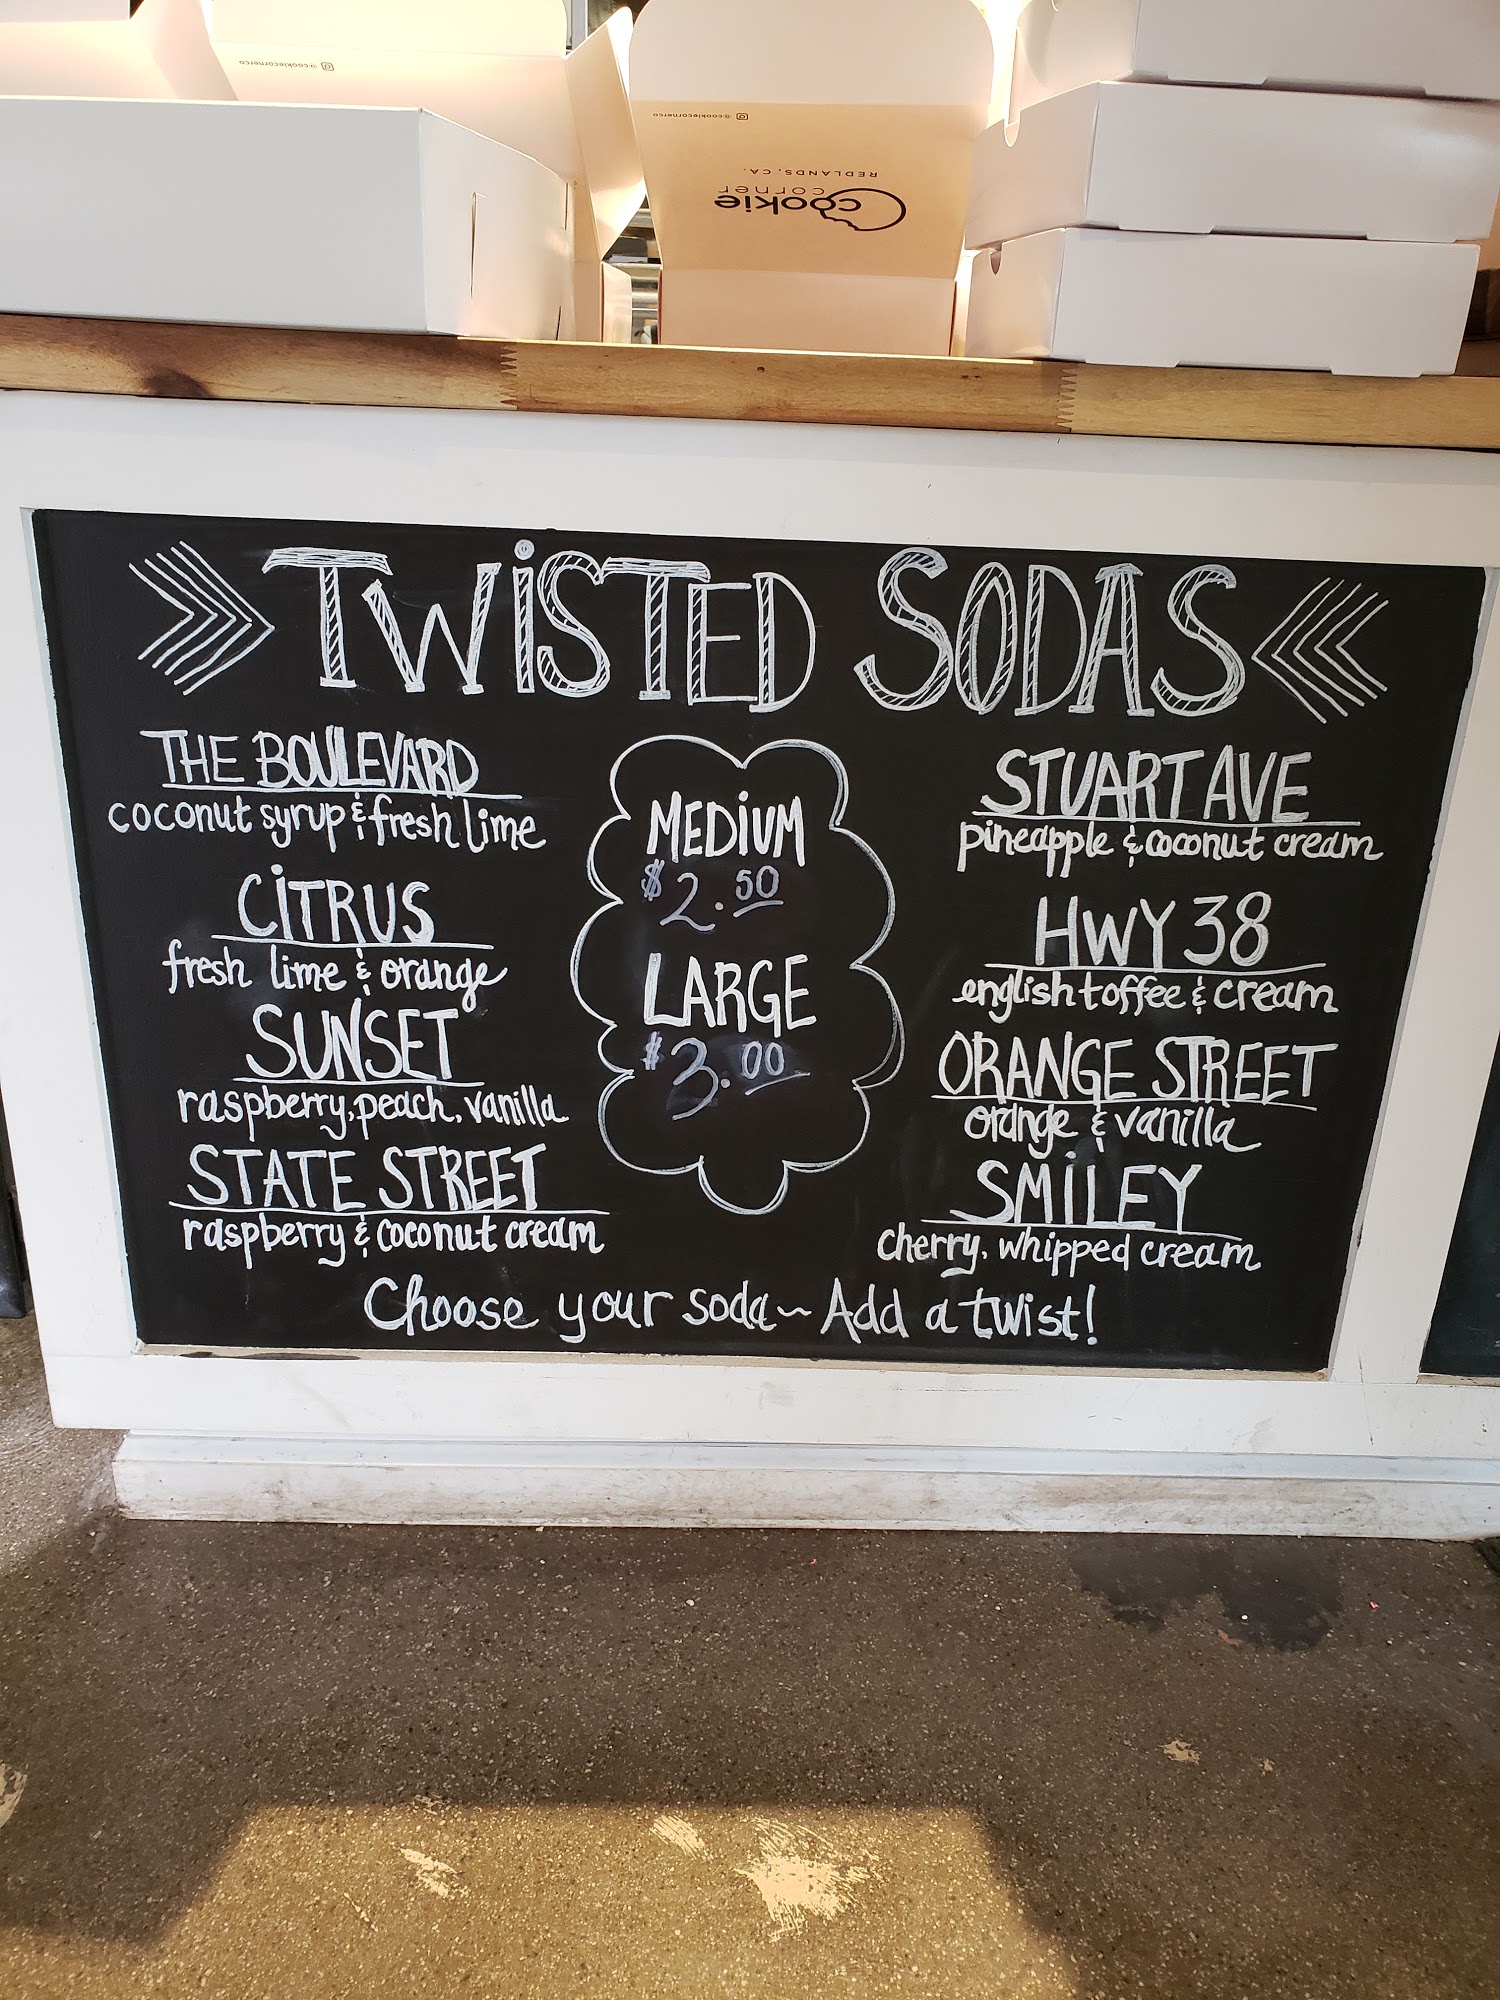 @cookiecornerco
@cookiecornerco
REDLANDS, CA.
cookie
corner
TWiSTED SODAS
THE BOULEVARD
coconut syrup & fresh lime
CiTRUS
fresh lime & orange
SUNSET
raspberry, peach, vanilla
STATE STREET
raspberry & coconut cream
MEDiUM
$2.50
LARGE
$3.00
STUART AVE
pineapple & coconut cream
HWY 38
english toffee & cream
ORANGE STREET
orange & vanilla
SMiLEY
cherry, whipped cream
Choose your soda~Add a twist!